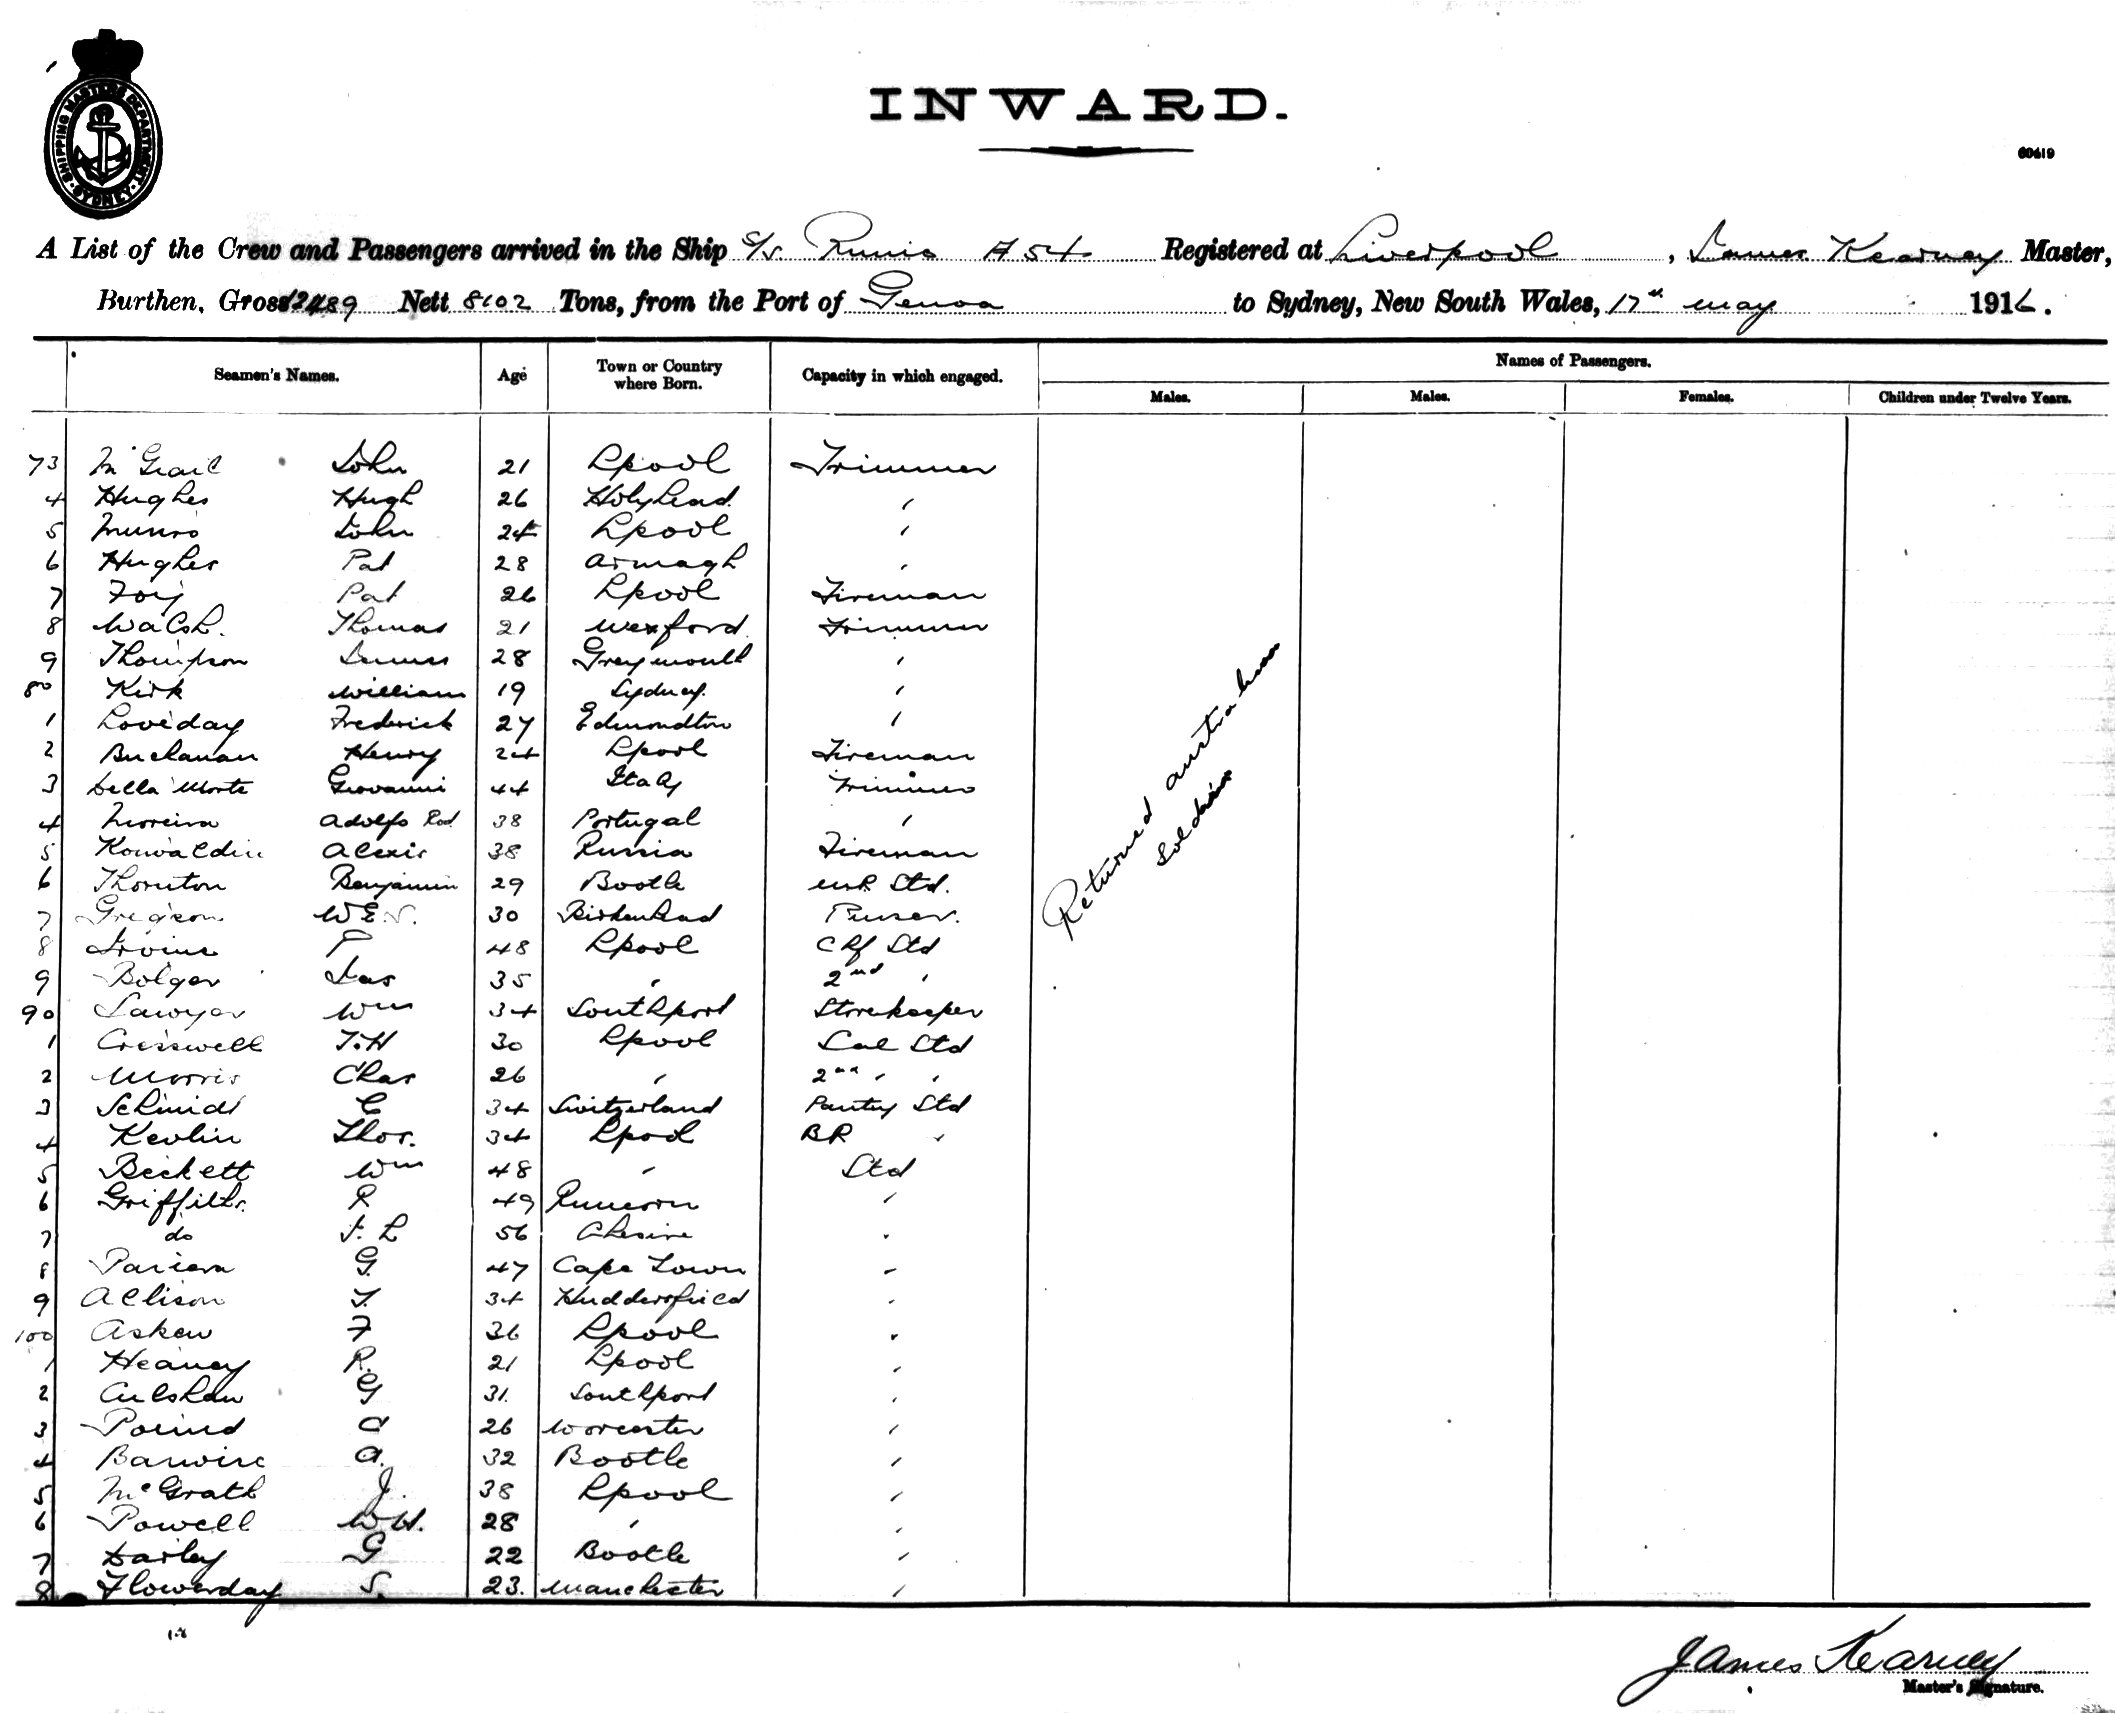 SHIPPING MASTERS DEPARTMENT. SYDNEY.
INWARD.
60619
A List of the Crew and Passengers arrived in the Ship S/S Runic A 54 Registered at Liverpool, James Kearney Master,
Burthen, Gross 12489 Nett 8102 Tons, from the Port of Genoa to Sydney, New South Wales, 17th May 1916.
Seamen's Names. Age Town or Country where Born. Capacity in which engaged. Names of Passengers.
Males. Males. Females. Children under Twelve Years.
73 McGrail John 21 Lpool Trimmer
4 Hughes Hugh 26 Holyhead "
5 Munro John 24 Lpool "
6 Hughes Pat 28 Armagh "
7 Foy Pat 26 Lpool Fireman
8 Walsh. Thomas 21 Wexford Trimmer
9 Thompson James 28 Greymouth "
80 Kirk William 19 Sydney. "
1 Loveday Frederick 27 Edmondton "
2 Buchanan Henry 24 Lpool Fireman
3 Della Morte Giovanni 44 Italy Trimmer
4 Moreira Adolfo Rod 38 Portugal "
5 Kowaldin Alexis 38 Russia Fireman
6 Thornton Benjamin 29 Bootle Std.
7 Gregson W E 30 Birkenhead Purser.
8 Irvine 48 Lpool Chf Std
9 Bolger Jas 35 " 2nd "
90 Sawyer Wm 34 Southport Storekeeper
1 Cresswell T.H 30 Lpool Sal Std
2 Morris Chas 26 " 2nd " "
3 Schmidt E 34 Switzerland Pantry Std
4 Kevlin Thos. 34 Lpool BR "
5 Beckett Wm 48 " Std
6 Griffiths. R 49 Runcorn "
7 do J. L 56 Chesire "
8 G. 47 Cape Town "
9 Allison T. 34 Huddersfield "
100 Askew F 36 Lpool "
1 Heaney R. 21 Lpool "
2 Culshaw G 31. Southport "
3 Pound C 26 Worcester "
4 Barwise A. 32 Bootle "
5 McGrath J. 38 Lpool "
6 Powell W H. 28 " "
7 Darley G 22 Bootle "
8 Flowerday S. 23. Manchester "
Returned Australian
Soldiers
James Kearney
Master's Signature.